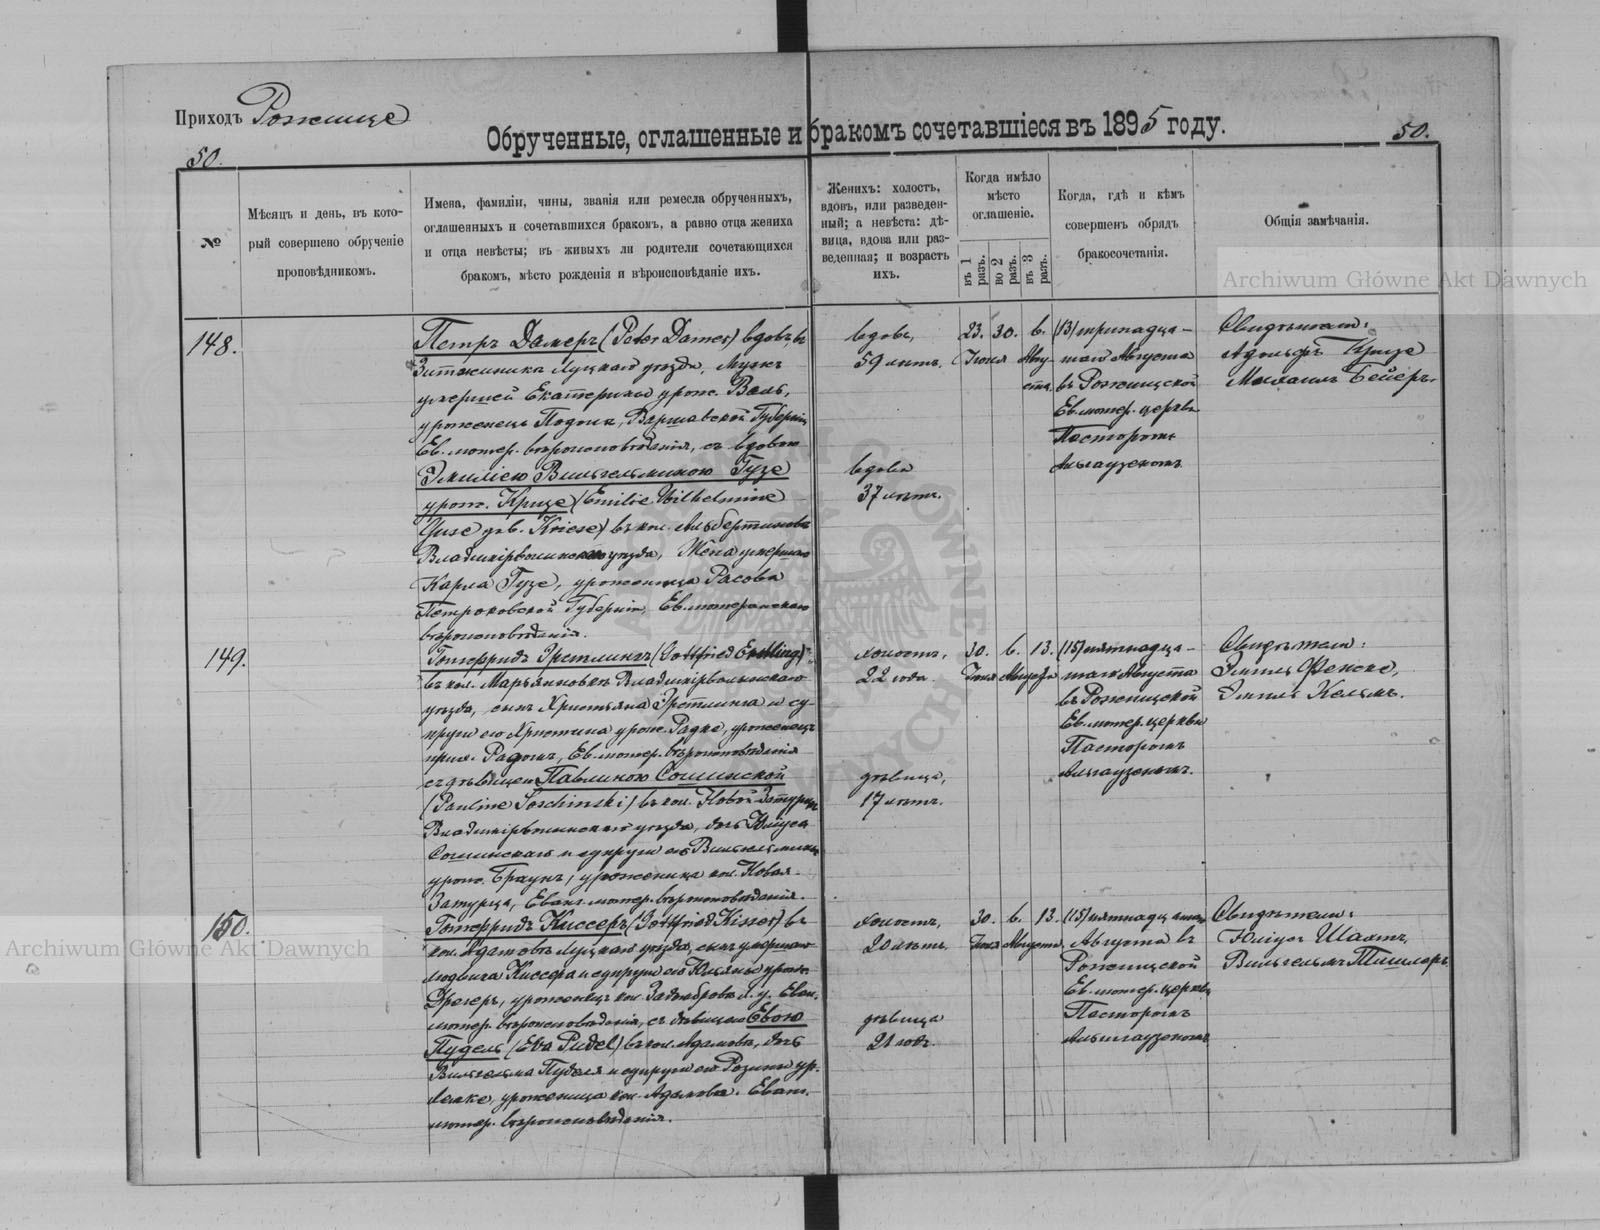 Приходъ Рожище
Обрученные, оглашенные и бракомъ сочетавшіеся въ 1895 году.
50.
50.
№
Мѣсяцъ и день, въ кото-
рый совершено обрученіе
проповѣдникомъ.
Имена, фамиліи, чины, званія или ремесла обрученныхъ,
оглашенныхъ и сочетавшихся бракомъ, а равно отца жениха
и отца невѣсты; въ живыхъ ли родители сочетающихся
бракомъ, мѣсто рожденія и вѣроисповѣданіе ихъ.
Женихъ: холостъ,
вдовъ, или разведен-
ный; а невѣста: дѣ-
вица, вдова или раз-
веденная; и возрастъ
ихъ.
Когда имѣло
мѣсто
оглашеніе.
въ 1 разъ.
во 2 разъ.
въ 3 разъ.
Когда, гдѣ и кѣмъ
совершенъ обрядъ
бракосочетанія.
Общія замѣчанія.
148.
Петръ Дамеръ (Peter Damer) вдовъ, въ
Луцкаго уѣзда, Мужъ
умершей Екатерины урож.
уроженецъ Варшавской Губерніи,
Ев. лютер. вѣроисповѣданія, съ вдовою
Эмиліею Вильгельминою Гузе
урож. Кризе (Emilie Wilhelmine
Guse geb. Kriese) въ кол. Альбертиновъ
Владимірволынскаго уѣзда, Жена умершаго
Карла Гузе, уроженица Расова
Петроковской Губерніи, Ев. лютеранскаго
вѣроисповѣданія.
вдовъ,
59 лѣтъ.
вдова
37 лѣтъ.
23. 30. 6.
Іюля Авгу-
ста
(13) тринадца-
таго Августа
въ Рожищской
Ев. лютер. церкви
Пасторомъ
Альгаузеномъ
Свидѣтели:
Адольфъ Кризе
Михаилъ Бейеръ.
149.
Готфридъ Эртлингъ (Gottfried Ertling)
въ кол. Марьяновкѣ Владимірволынскаго
уѣзда, сынъ Христьяна Эртлинга и су-
пруги его Христины урож. Радке, уроженецъ
Ев. лютер. вѣроисповѣданія
съ дѣвицею Павлиною Сошинской
(Pauline Soschinski) въ кол. Новой Затурцы
Владимірволынскаго уѣзда, дочь Юліуса
Сошинскаго и супруги его Вильгельмины
урож. Браунъ, уроженица кол. Новая-
Затурца, Еванг. лютер. вѣроисповѣданія.
холостъ,
22 года.
дѣвица,
17 лѣтъ.
30. 6. 13.
Іюля Августа
(15) пятнадца-
таго Августа
въ Рожищской
Ев. лютер. церкви
Пасторомъ
Альгаузеномъ.
Свидѣтели:
Эмиль Фенске,
Эмиль Кельмъ.
150.
Готфридъ Киссеръ (Gottfried Kisser) въ
кол. Адамовъ Луцкаго уѣзда, сынъ умершаго
Людвига Киссера и супруги его Юльяны урож.
уроженецъ кол. Л. у. Еван.
лютер. вѣроисповѣданія, съ дѣвицею Евою
Пудель (Eva Pudel) въ кол. Адамовъ, дочь
Вильгельма Пуделя и супруги его Розины ур.
уроженица кол. Адамовъ. Еванг.
лютер. вѣроисповѣданія.
холостъ,
20 лѣтъ,
дѣвица
21 годъ.
30. 6. 13.
Іюля Августа,
(15) пятнадцатаго
Августа въ
Рожищской
Ев. лютер. церкви
Пасторомъ
Альгаузеномъ
Свидѣтели:
Юліусъ Шахтъ,
Вильгельмъ Тишлеръ
Archiwum Główne Akt Dawnych
Archiwum Główne Akt Dawnych